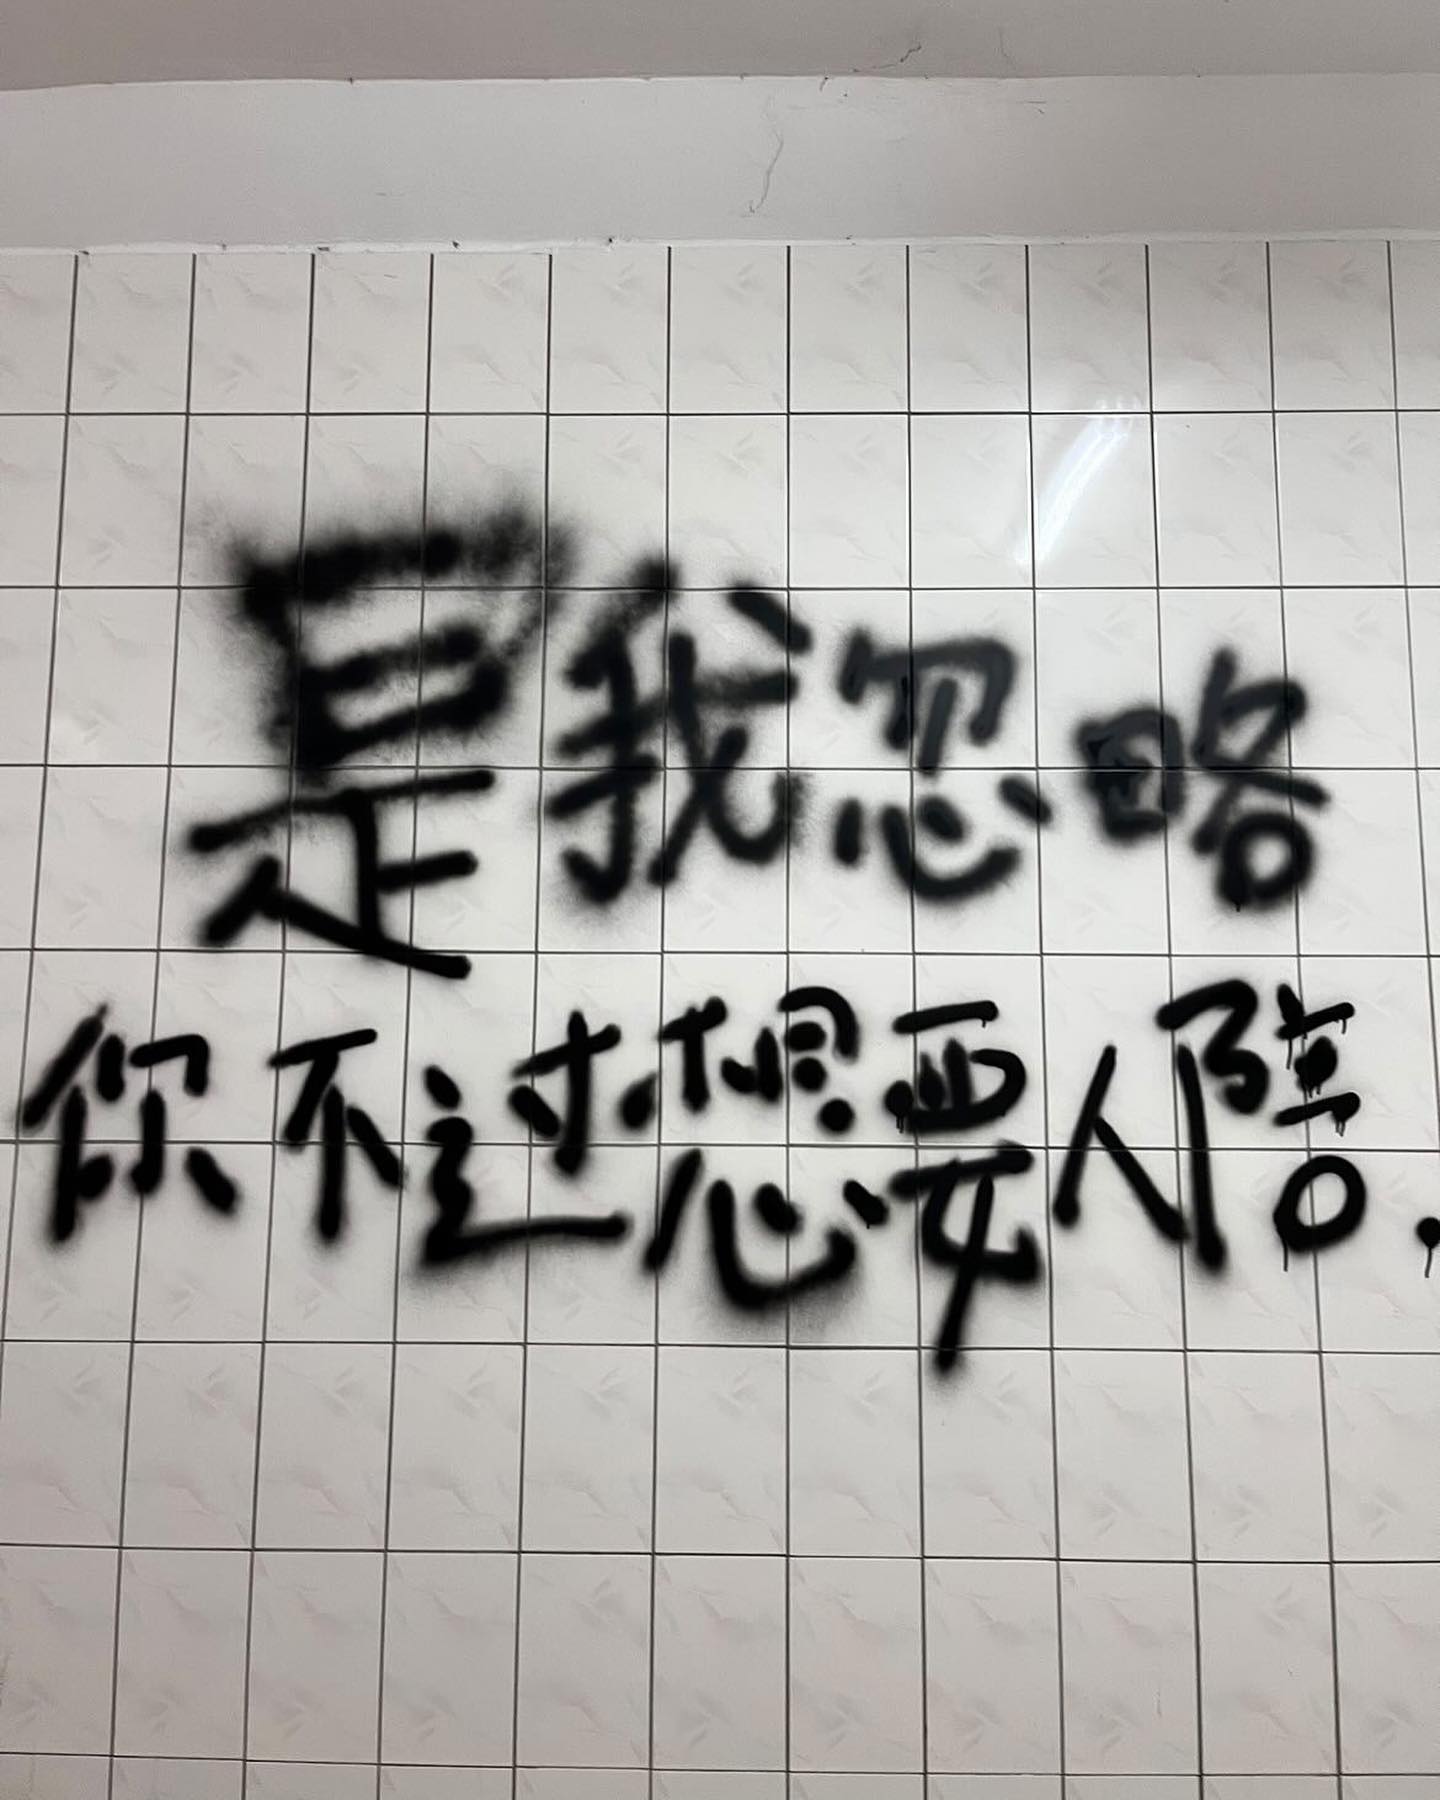 是我忽略
你不过想要人陪.